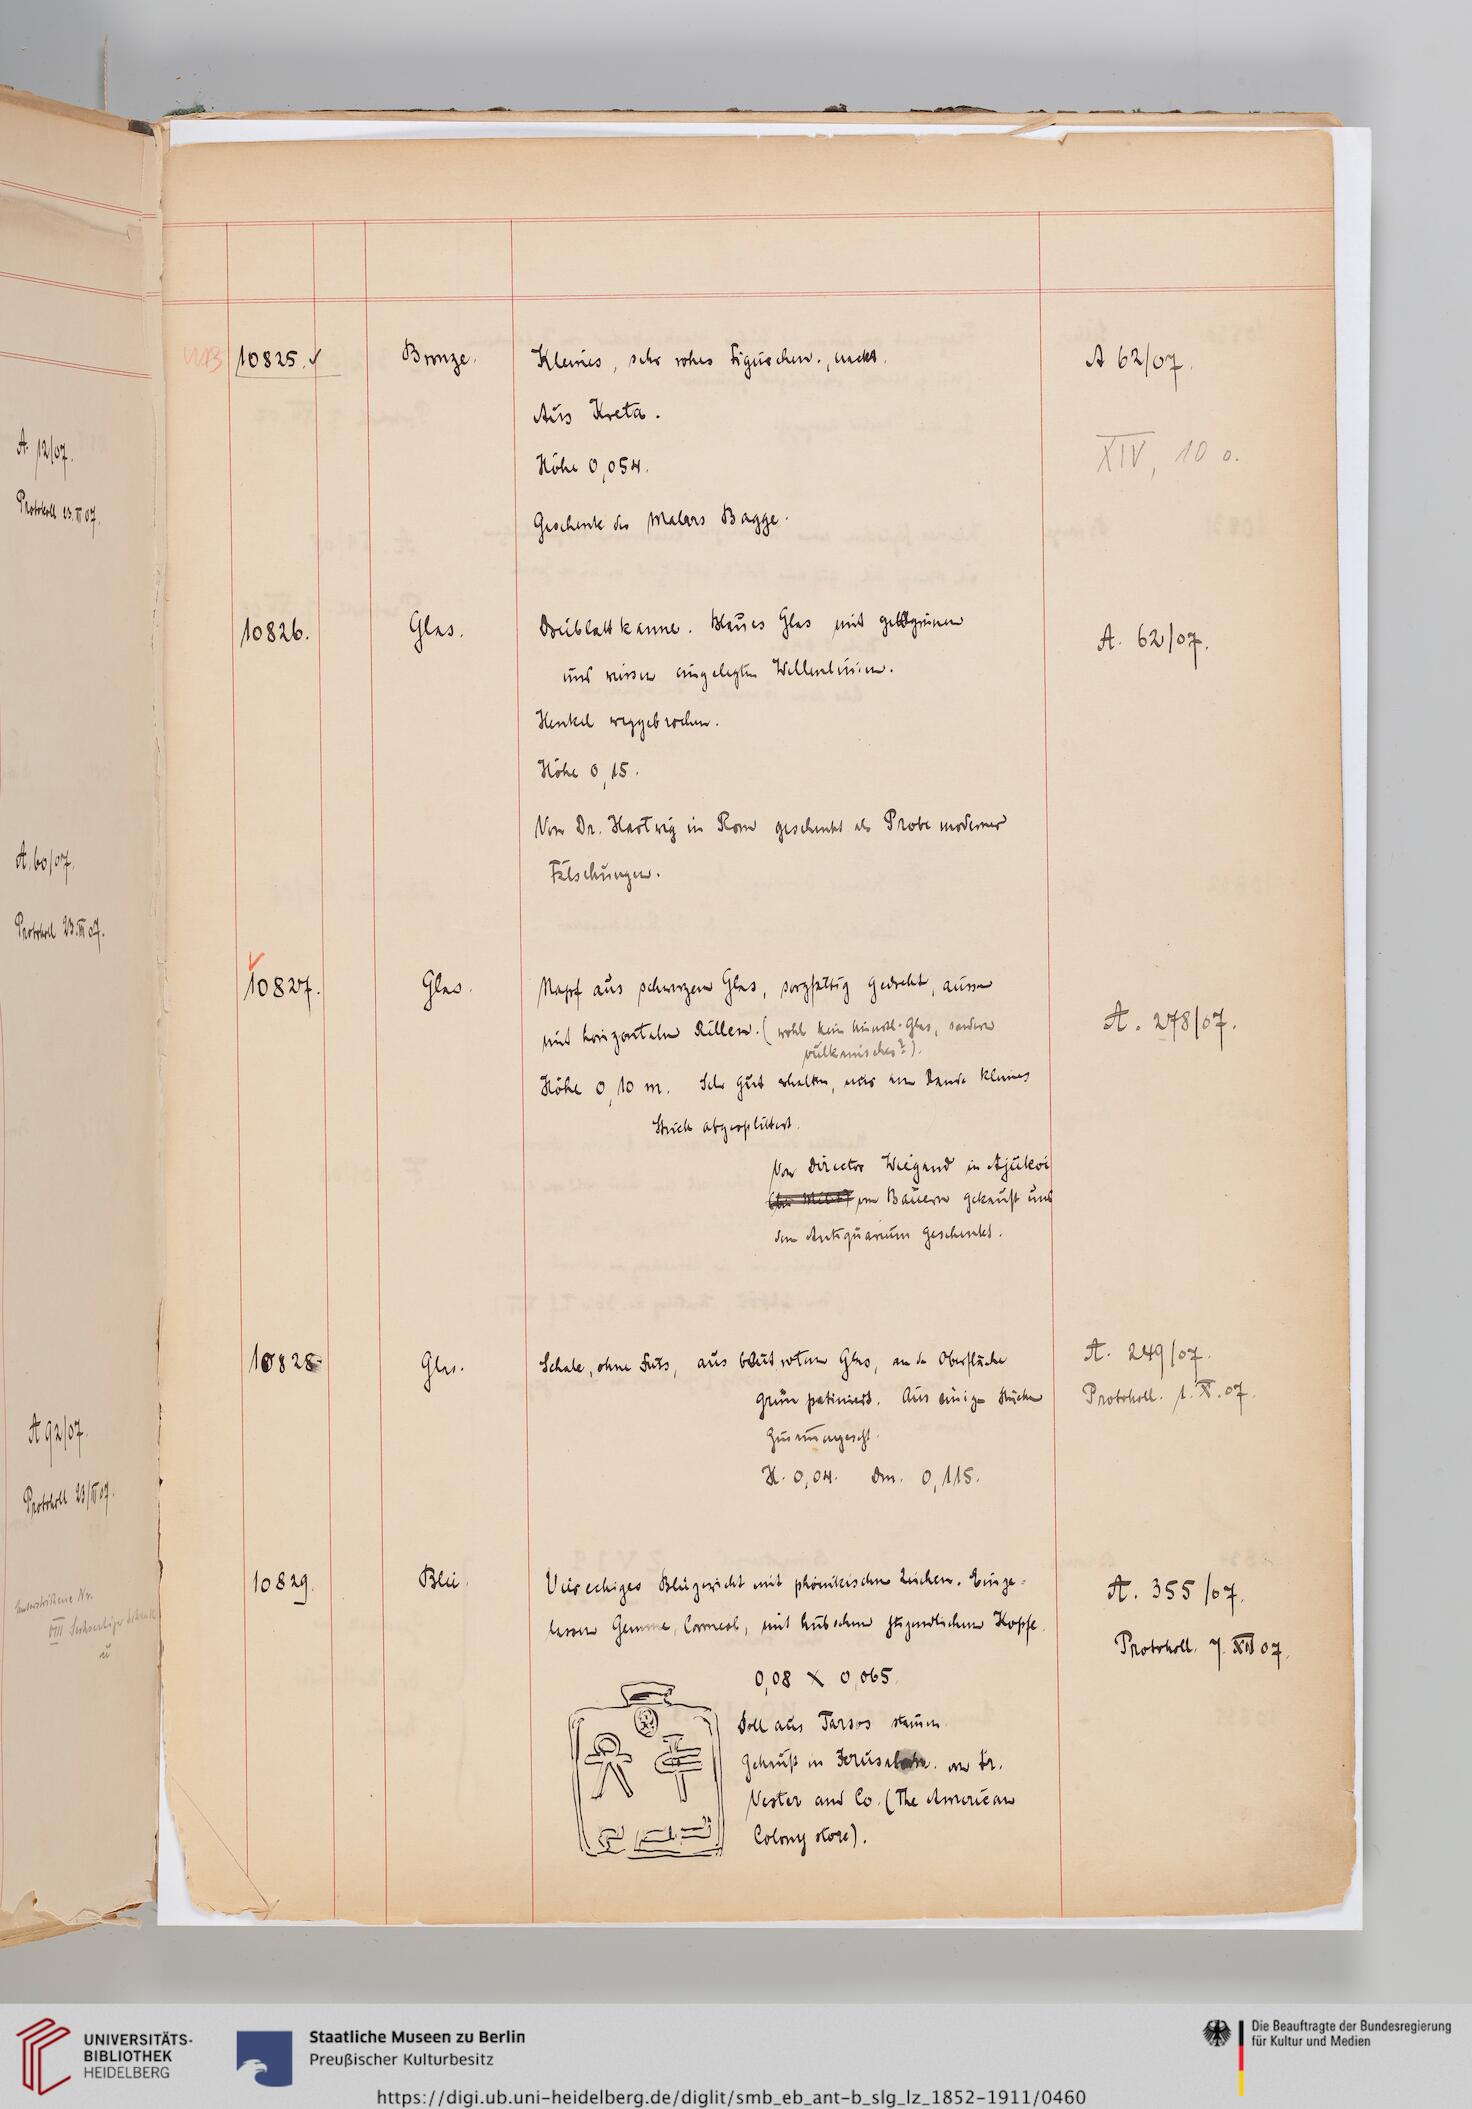 A. 12/07.
Protokoll 23.III 07.
A. 60/07.
Protokoll 23.III 07.
A 92/07.
Protokoll 23/III 07.
Nr.
VIII
10825.
Bronze.
Kleines, sehr rohes Figürchen., nackt.
A 62/07.
Aus Kreta.
XIV, 10 o.
Höhe 0,054.
Geschenk des Malers Bagge.
10826.
Glas.
Dreiblattkanne. Blaues Glas mit gelbgrünen
A. 62/07.
und weissen eingelegten Wellenlinien.
Henkel weggebrochen.
Höhe 0,15.
Von Dr. Hartwig in Rom geschenkt als Probe moderner
Fälschungen.
10827.
Glas.
Napf aus schwarzem Glas, sorgfältig gedreht, aussen
A. 278/07.
mit horizontalen Rillen. (wohl kein künstl. Glas, sondern
vulkanisches?).
Höhe 0,10 m. Sehr gut erhalten, nur am Rande kleines
Stück abgesplittert.
Von Director Wiegand in Ajükoi
von Bauern gekauft und
dem Antiquarium geschenkt.
10828
Glas.
Schale, ohne Fuss, aus blutrotem Glas, an der Oberfläche
A. 249/07.
grün patiniert. Aus einigen Stücken
Protokoll. 1. X. 07.
zusammengesetzt.
H. 0,04. Dm. 0,115.
10829.
Blei.
Viereckiges Bleigewicht mit phönikischen Zeichen. Einge-
A. 355/07.
lassene Gemme, Corneol, mit hübschem jugendlichem Kopfe.
Protokoll. 7. XII 07.
0,08 x 0,065.
Soll aus Tarsos stammen.
Gekauft in Jerusalem. von Fr.
Vester and Co. (The American
Colony store).
UNIVERSITÄTS-
BIBLIOTHEK
HEIDELBERG
Staatliche Museen zu Berlin
Preußischer Kulturbesitz
Die Beauftragte der Bundesregierung
für Kultur und Medien
https://digi.ub.uni-heidelberg.de/diglit/smb_eb_ant-b_slg_lz_1852-1911/0460